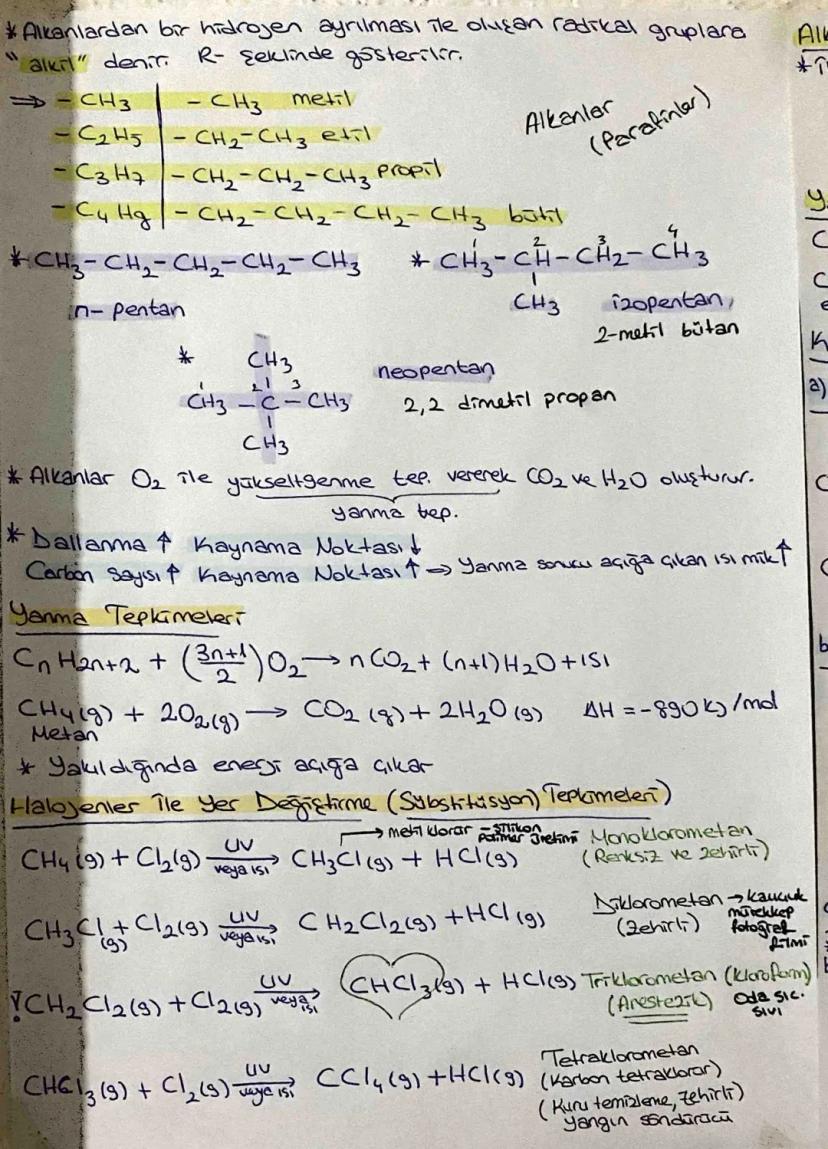 * Alkanlardan bir hidrojen ayrılması ile oluşan radikal gruplara
"alkil" denir. R- şeklinde gösterilir.
⇒ - CH3 | - CH3 metil
- C2H5 | - CH2 - CH3 etil
- C3H7 | - CH2 - CH2 - CH3 propil
- C4H9 | - CH2 - CH2 - CH2 - CH3 bütil
Alkanlar
(Parafinler)
* CH3 - CH2 - CH2 - CH2 - CH3
n- pentan
1 2 3 4
* CH3 - CH - CH2 - CH3
CH3 izopentan,
2-metil bütan
* CH3
1 2 3
CH3 - C - CH3
CH3
neopentan
2,2 dimetil propan
* Alkanlar O2 ile yükseltgenme tep. vererek CO2 ve H2O oluşturur.
yanma tep.
* Dallanma ↑ Kaynama Noktası ↓
Carbon Sayısı ↑ Kaynama Noktası ↑ ⇒ Yanma sonucu açığa çıkan ısı mik ↑
Yanma Tepkimeleri
CnH2n+2 + (3n+1/2) O2 → nCO2 + (n+1) H2O + ısı
CH4(g) + 2O2(g) → CO2 (g) + 2H2O (g) ΔH = -890 kj/mol
Metan
* Yakıldığında enerji açığa çıkar
Halojenler ile Yer Değiştirme (Substitüsyon) Tepkimeleri)
→ metil klorür - silikon polimer üretimi
CH4(g) + Cl2(g) UV veya ısı → CH3Cl (g) + HCl (g) Monoklorometan
(Renksiz ve zehirli)
CH3Cl (g) + Cl2(g) UV veya ısı → CH2Cl2(g) + HCl (g) Diklorometan → kauçuk
(Zehirli) mürekkep
fotoğraf
filmi
! CH2Cl2(g) + Cl2(g) UV veya ısı → CHCl3(g) + HCl(g) Triklorometan (kloroform)
(Anestezik) Oda sıc.
sıvı
CHCl3 (g) + Cl2(g) UV veya ısı → CCl4 (g) + HCl (g) Tetraklorometan
(Karbon tetraklorür)
(Kuru temizleme, zehirli)
yangın söndürücü
Alk
a)
b